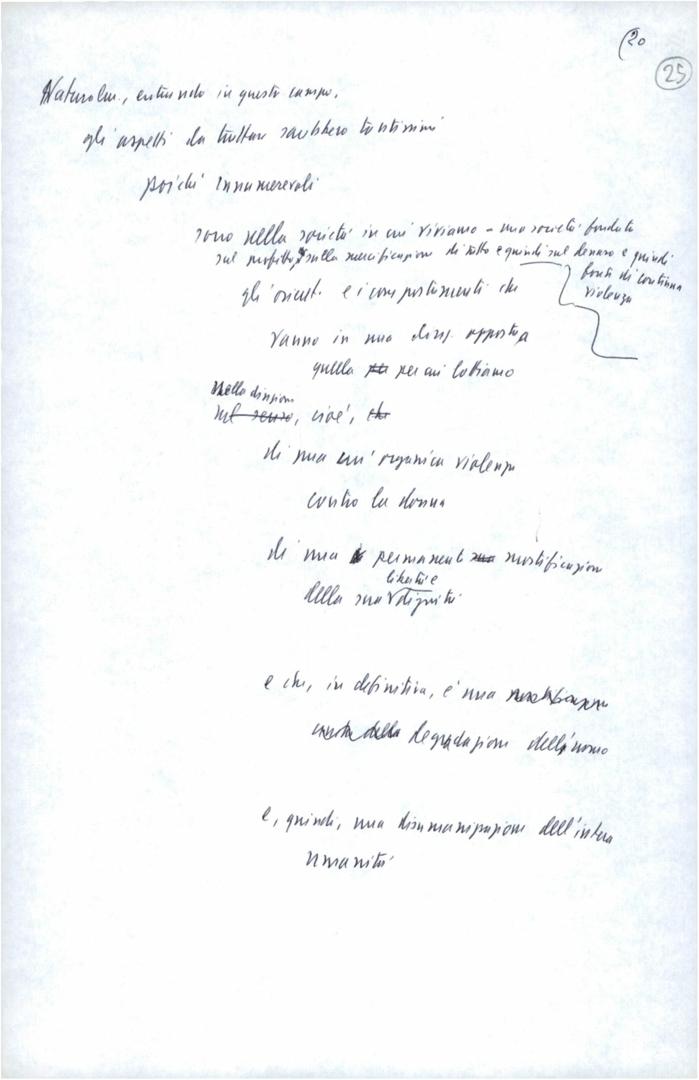 (20
25
Naturalm., entrando in questo campo,
gli aspetti da trattare sarebbero tantissimi
poiché innumerevoli
sono nella società in cui viviamo – una società fondata
sul profitto, sulla mercificazione di tutto e quindi sul denaro e quindi
fonte di continua
violenza
gli orient. e i comportamenti che
vanno in una direz. opposta a
quella per cui lottiamo
nella direzione
sul senso, cioè, che
di una un'organica violenza
contro la donna
di una permanente mistificazione
libertà e
della sua dignità
e che, in definitiva, è una
della degradazione dell'uomo
e, quindi, una disumanizzazione dell'intera
umanità